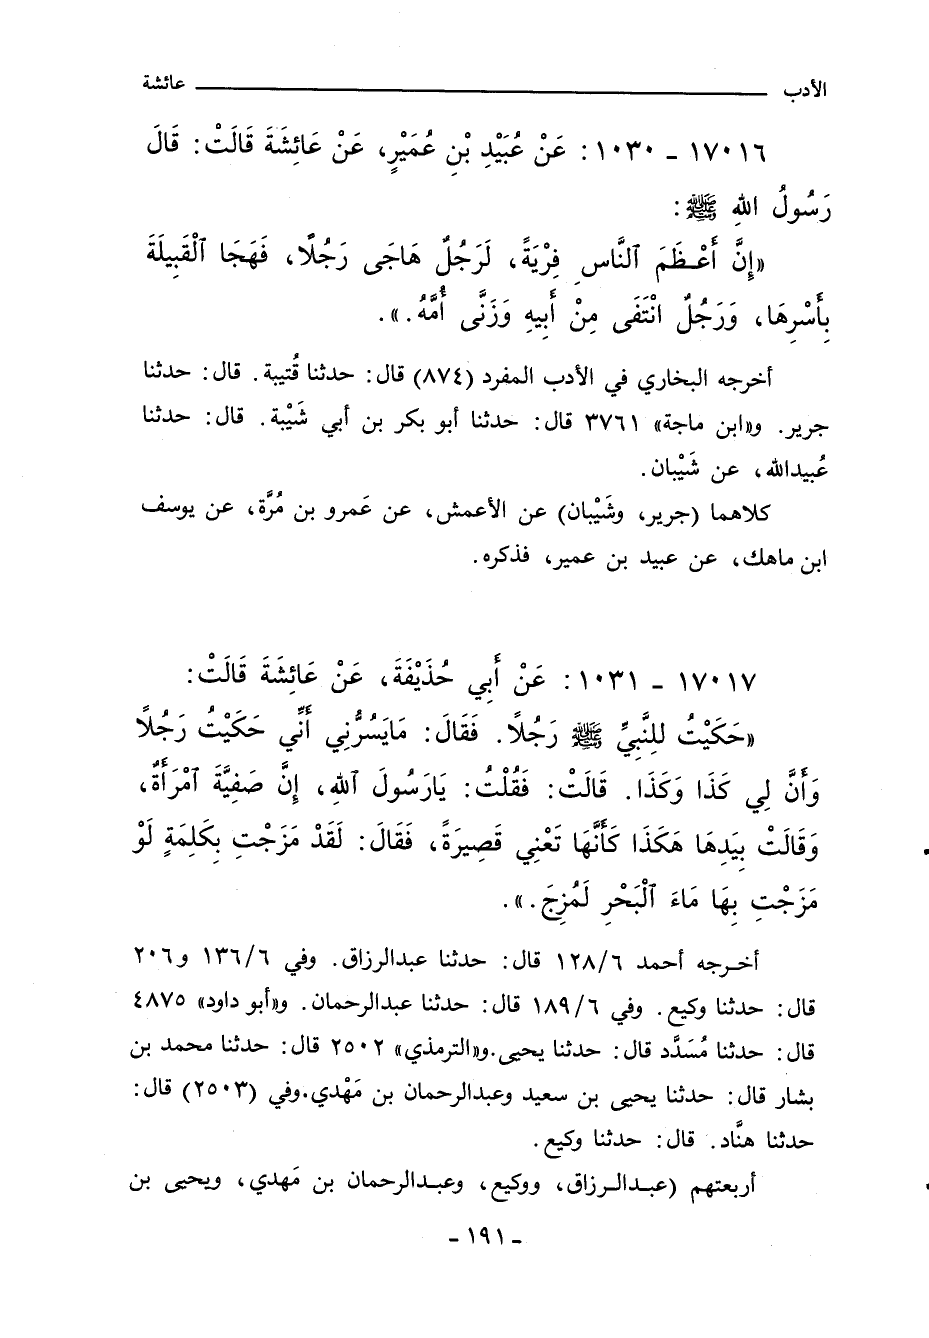 الأدب ــــــــــ عائشة
١٧٠١٦ ـ ١٠٣٠ : عَنْ عُبَيْدِ بْنِ عُمَيْرٍ، عَنْ عَائِشَةَ قَالَتْ: قَالَ
رَسُولُ اللهِ ﷺ:
«إِنَّ أَعْظَمَ ٱلنَّاسِ فِرْيَةً، لَرَجُلٌ هَاجَى رَجُلًا، فَهَجَا ٱلْقَبِيلَةَ
بِأَسْرِهَا، وَرَجُلٌ انْتَفَى مِنْ أَبِيهِ وَزَنَّى أُمَّهُ.».
أخرجه البخاري في الأدب المفرد (٨٧٤) قال: حدثنا قُتيبة. قال: حدثنا
جرير. و«ابن ماجة» ٣٧٦١ قال: حدثنا أبو بكر بن أبي شَيْبة. قال: حدثنا
عُبيدالله، عن شَيْبان.
كلاهما (جرير، وشَيْبان) عن الأعمش، عن عَمرو بن مُرَّة، عن يوسف
ابن ماهك، عن عبيد بن عمير، فذكره.
١٧٠١٧ ـ ١٠٣١ : عَنْ أَبِي حُذَيْفَةَ، عَنْ عَائِشَةَ قَالَتْ:
«حَكَيْتُ لِلنَّبِيِّ ﷺ رَجُلًا. فَقَالَ: مَايَسُرُّنِي أَنِّي حَكَيْتُ رَجُلًا
وَأَنَّ لِي كَذَا وَكَذَا. قَالَتْ: فَقُلْتُ: يَارَسُولَ ٱللهِ، إِنَّ صَفِيَّةَ ٱمْرَأَةٌ،
وَقَالَتْ بِيَدِهَا هَكَذَا كَأَنَّهَا تَعْنِي قَصِيرَةً، فَقَالَ: لَقَدْ مَزَجْتِ بِكَلِمَةٍ لَوْ
مَزَجْتِ بِهَا مَاءَ ٱلْبَحْرِ لَمُزِجَ.».
أخرجه أحمد ١٢٨/٦ قال: حدثنا عبدالرزاق. وفي ١٣٦/٦ و٢٠٦
قال: حدثنا وكيع. وفي ١٨٩/٦ قال: حدثنا عبدالرحمان. و«أبو داود» ٤٨٧٥
قال: حدثنا مُسَدَّد قال: حدثنا يحيى.و«الترمذي» ٢٥٠٢ قال: حدثنا محمد بن
بشار قال: حدثنا يحيى بن سعيد وعبدالرحمان بن مَهْدي.وفي (٢٥٠٣) قال:
حدثنا هنَّاد. قال: حدثنا وكيع.
أربعتهم (عبدالرزاق، ووكيع، وعبدالرحمان بن مَهدي، ويحيى بن
ـ ١٩١ ـ